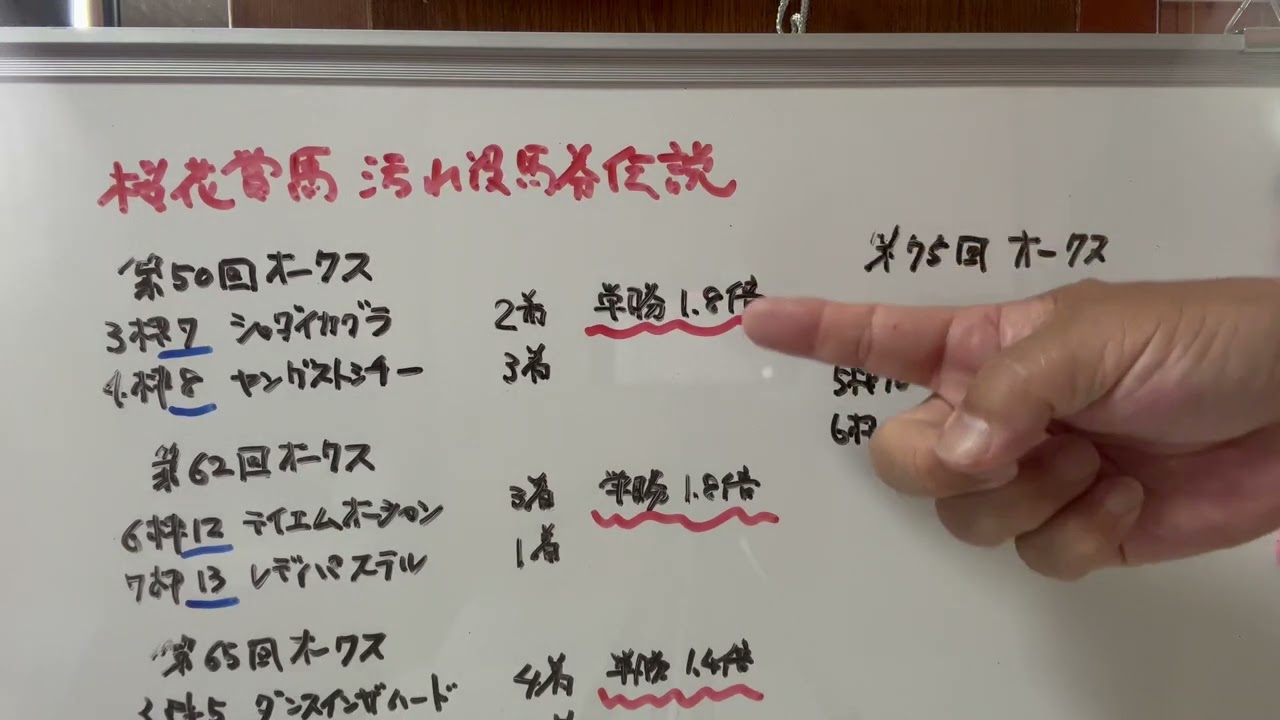 桜花賞馬 汚れ役馬券伝説
第50回オークス
3枠7 シャダイカグラ 2着 単勝1.8倍
4枠8 ヤングストシチー 3着
第62回オークス
6枠12 テイエムオーシャン 3着 単勝1.8倍
7枠13 レディパステル 1着
第65回オークス
5 ダンスインザムード 4着 単勝1.4倍
第75回 オークス
5枠10
6枠